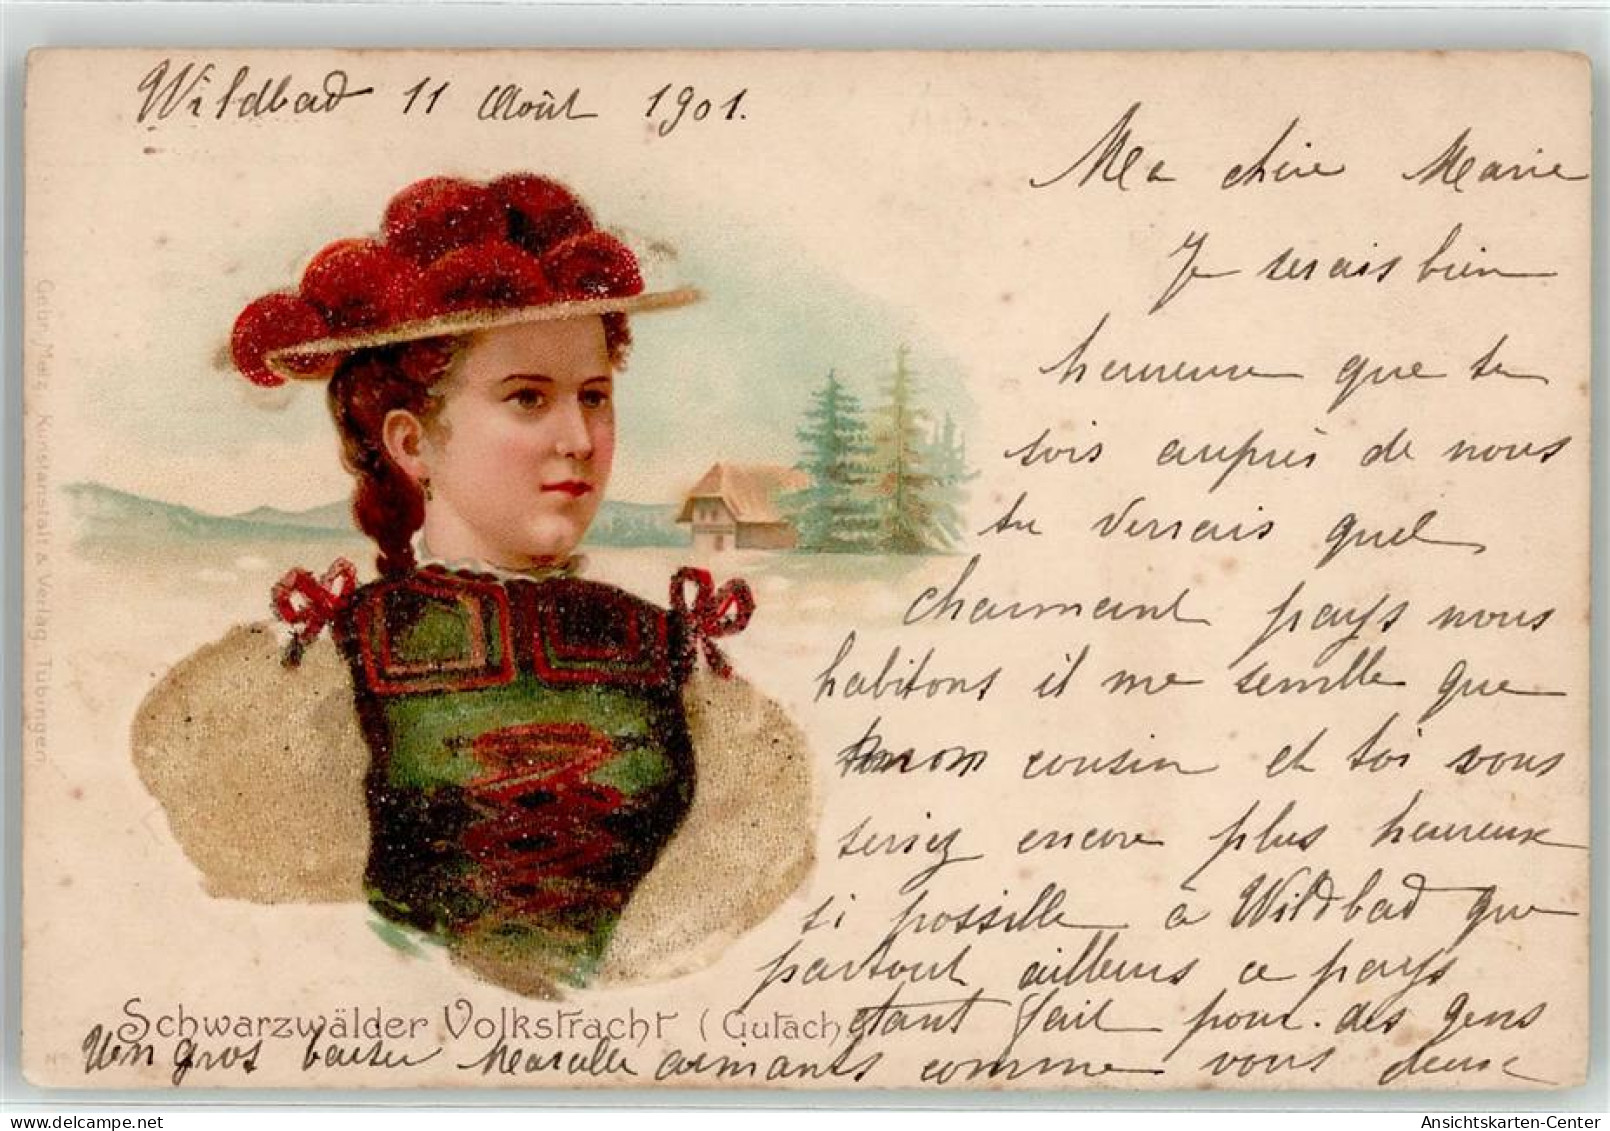 Wildbad 11 Août 1901.
Ma chère Marie
Je serais bien
heureuse que tu
sois auprès de nous
tu verrais quel
charmant pays nous
habitons il me semble que
mon cousin et toi vous
seriez encore plus heureux
si possible à Wildbad que
partout ailleurs ce pays
étant fait pour des gens
aimants comme vous deux
Un gros baiser
Schwarzwälder Volkstracht (Gutach
Gebr. Metz, Kunstanstalt & Verlag, Tübingen
Ansichtskarten-Center